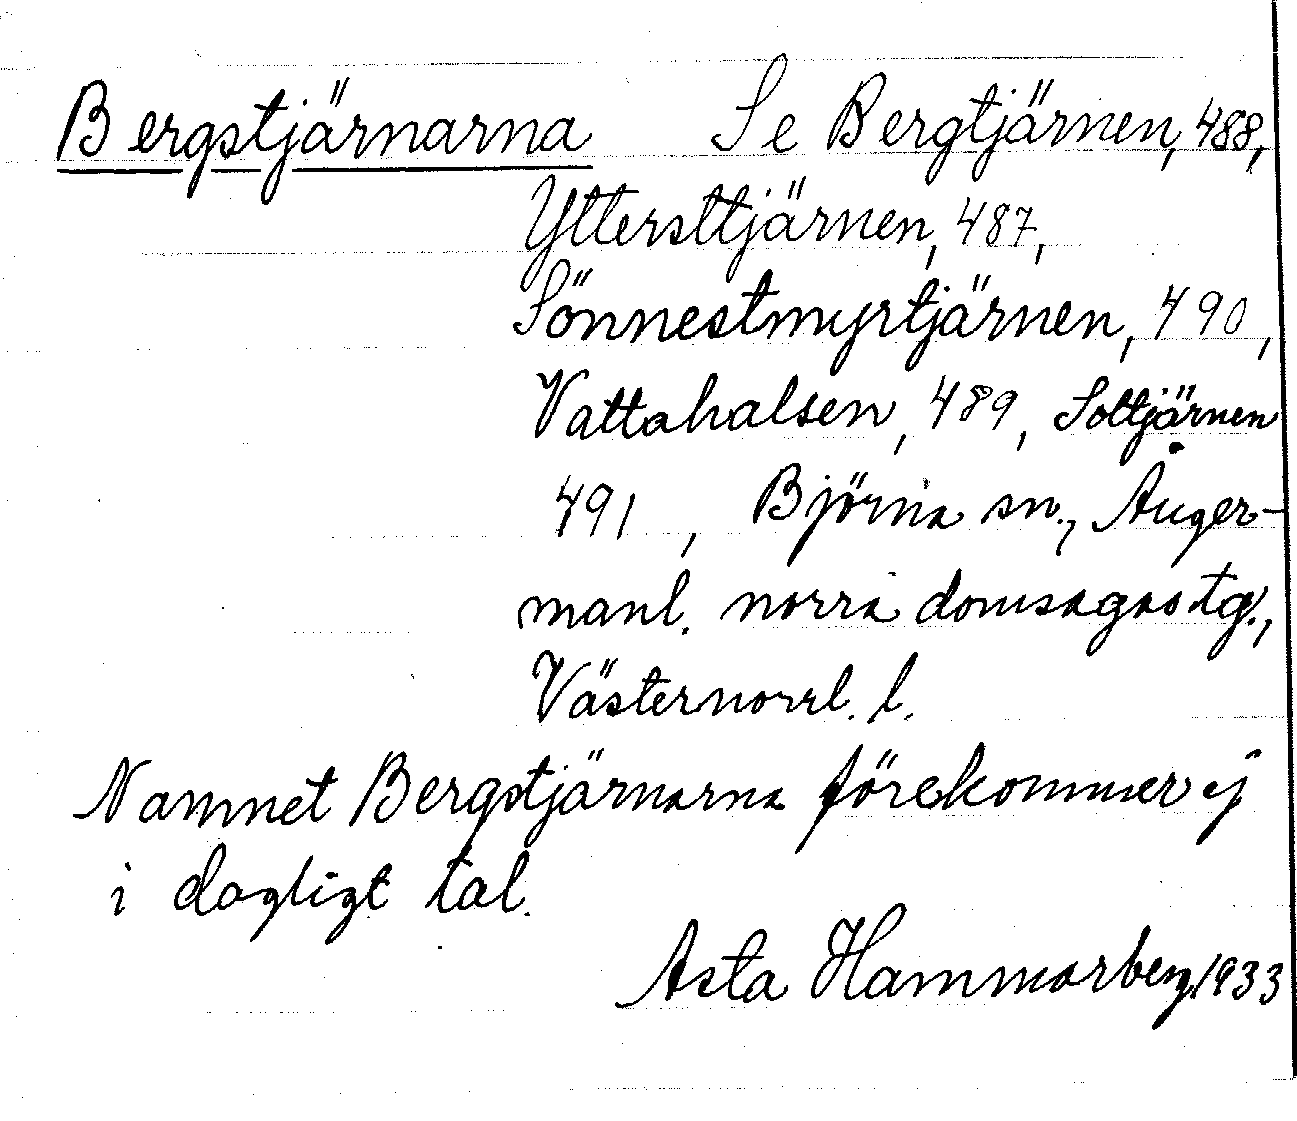 Bergstjärnarna Se Bergtjärnen, 488,
Yttersttjärnen, 487,
Sönnestmyrtjärnen, 490,
Vattahalsen, 489, Soltjärnen
491, Björna sn., Ånger-
manl. norra domsagas tg.,
Västernorrl. l.
Namnet Bergstjärnarna förekommer ej
i dagligt tal.
Asta Hammarberg 1933